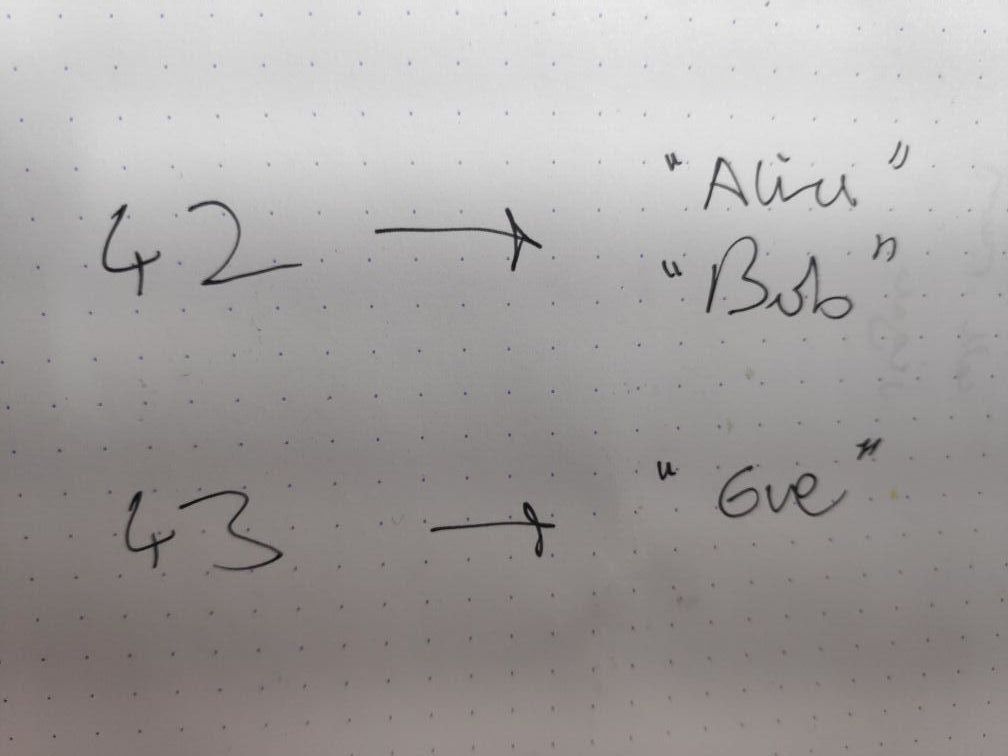 42 → "Alice"
"Bob"
43 → "Eve"